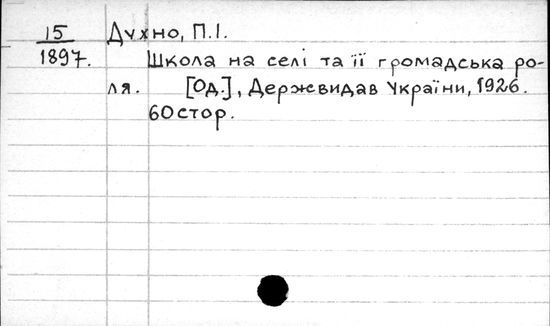 15
1897.
Духно, П.І.
Школа на селі та її громадська ро-
ля. [Од.], Держвидав України, 1926.
60 стор.